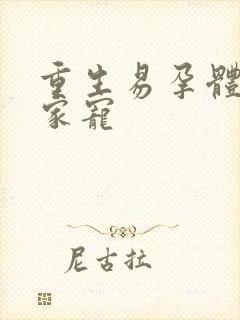 重生易孕體
家寵
尼古拉